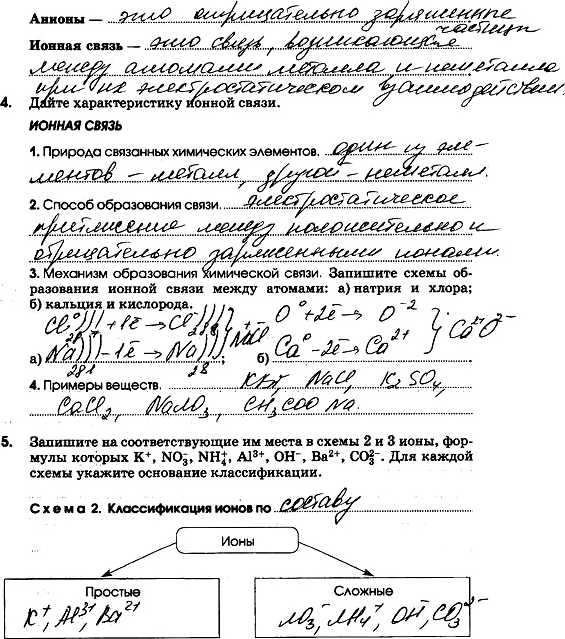 Анионы — это отрицательно заряженные
частицы
Ионная связь — это связь, возникающая
между атомами металла и неметалла
при их электростатическом взаимодействии.
4. Дайте характеристику ионной связи.
ИОННАЯ СВЯЗЬ
1. Природа связанных химических элементов. один из эле-
ментов – металл, другой – неметалл.
2. Способ образования связи. электростатическое
притяжение между положительно и
отрицательно заряженными ионами.
3. Механизм образования химической связи. Запишите схемы об-
разования ионной связи между атомами: а) натрия и хлора;
б) кальция и кислорода.
Cl⁰))) +1ē → Cl⁻))) O⁰ +2ē → O⁻²
2 8 7 2 8 8 Na⁺Cl⁻ Ca²⁺O²⁻
а) Na))) -1ē → Na)) ; б) Ca⁰ -2ē → Ca²⁺
2 8 1 2 8
4. Примеры веществ. NaCl, K₂SO₄,
CaCl₂, CH₃COONa.
5. Запишите на соответствующие им места в схемы 2 и 3 ионы, фор-
мулы которых K⁺, NO₃⁻, NH₄⁺, Al³⁺, OH⁻, Ba²⁺, CO₃²⁻. Для каждой
схемы укажите основание классификации.
Схема 2. Классификация ионов по составу
Ионы
Простые Сложные
K⁺, Al³⁺, Ba²⁺ NO₃⁻, NH₄⁺, OH⁻, CO₃²⁻